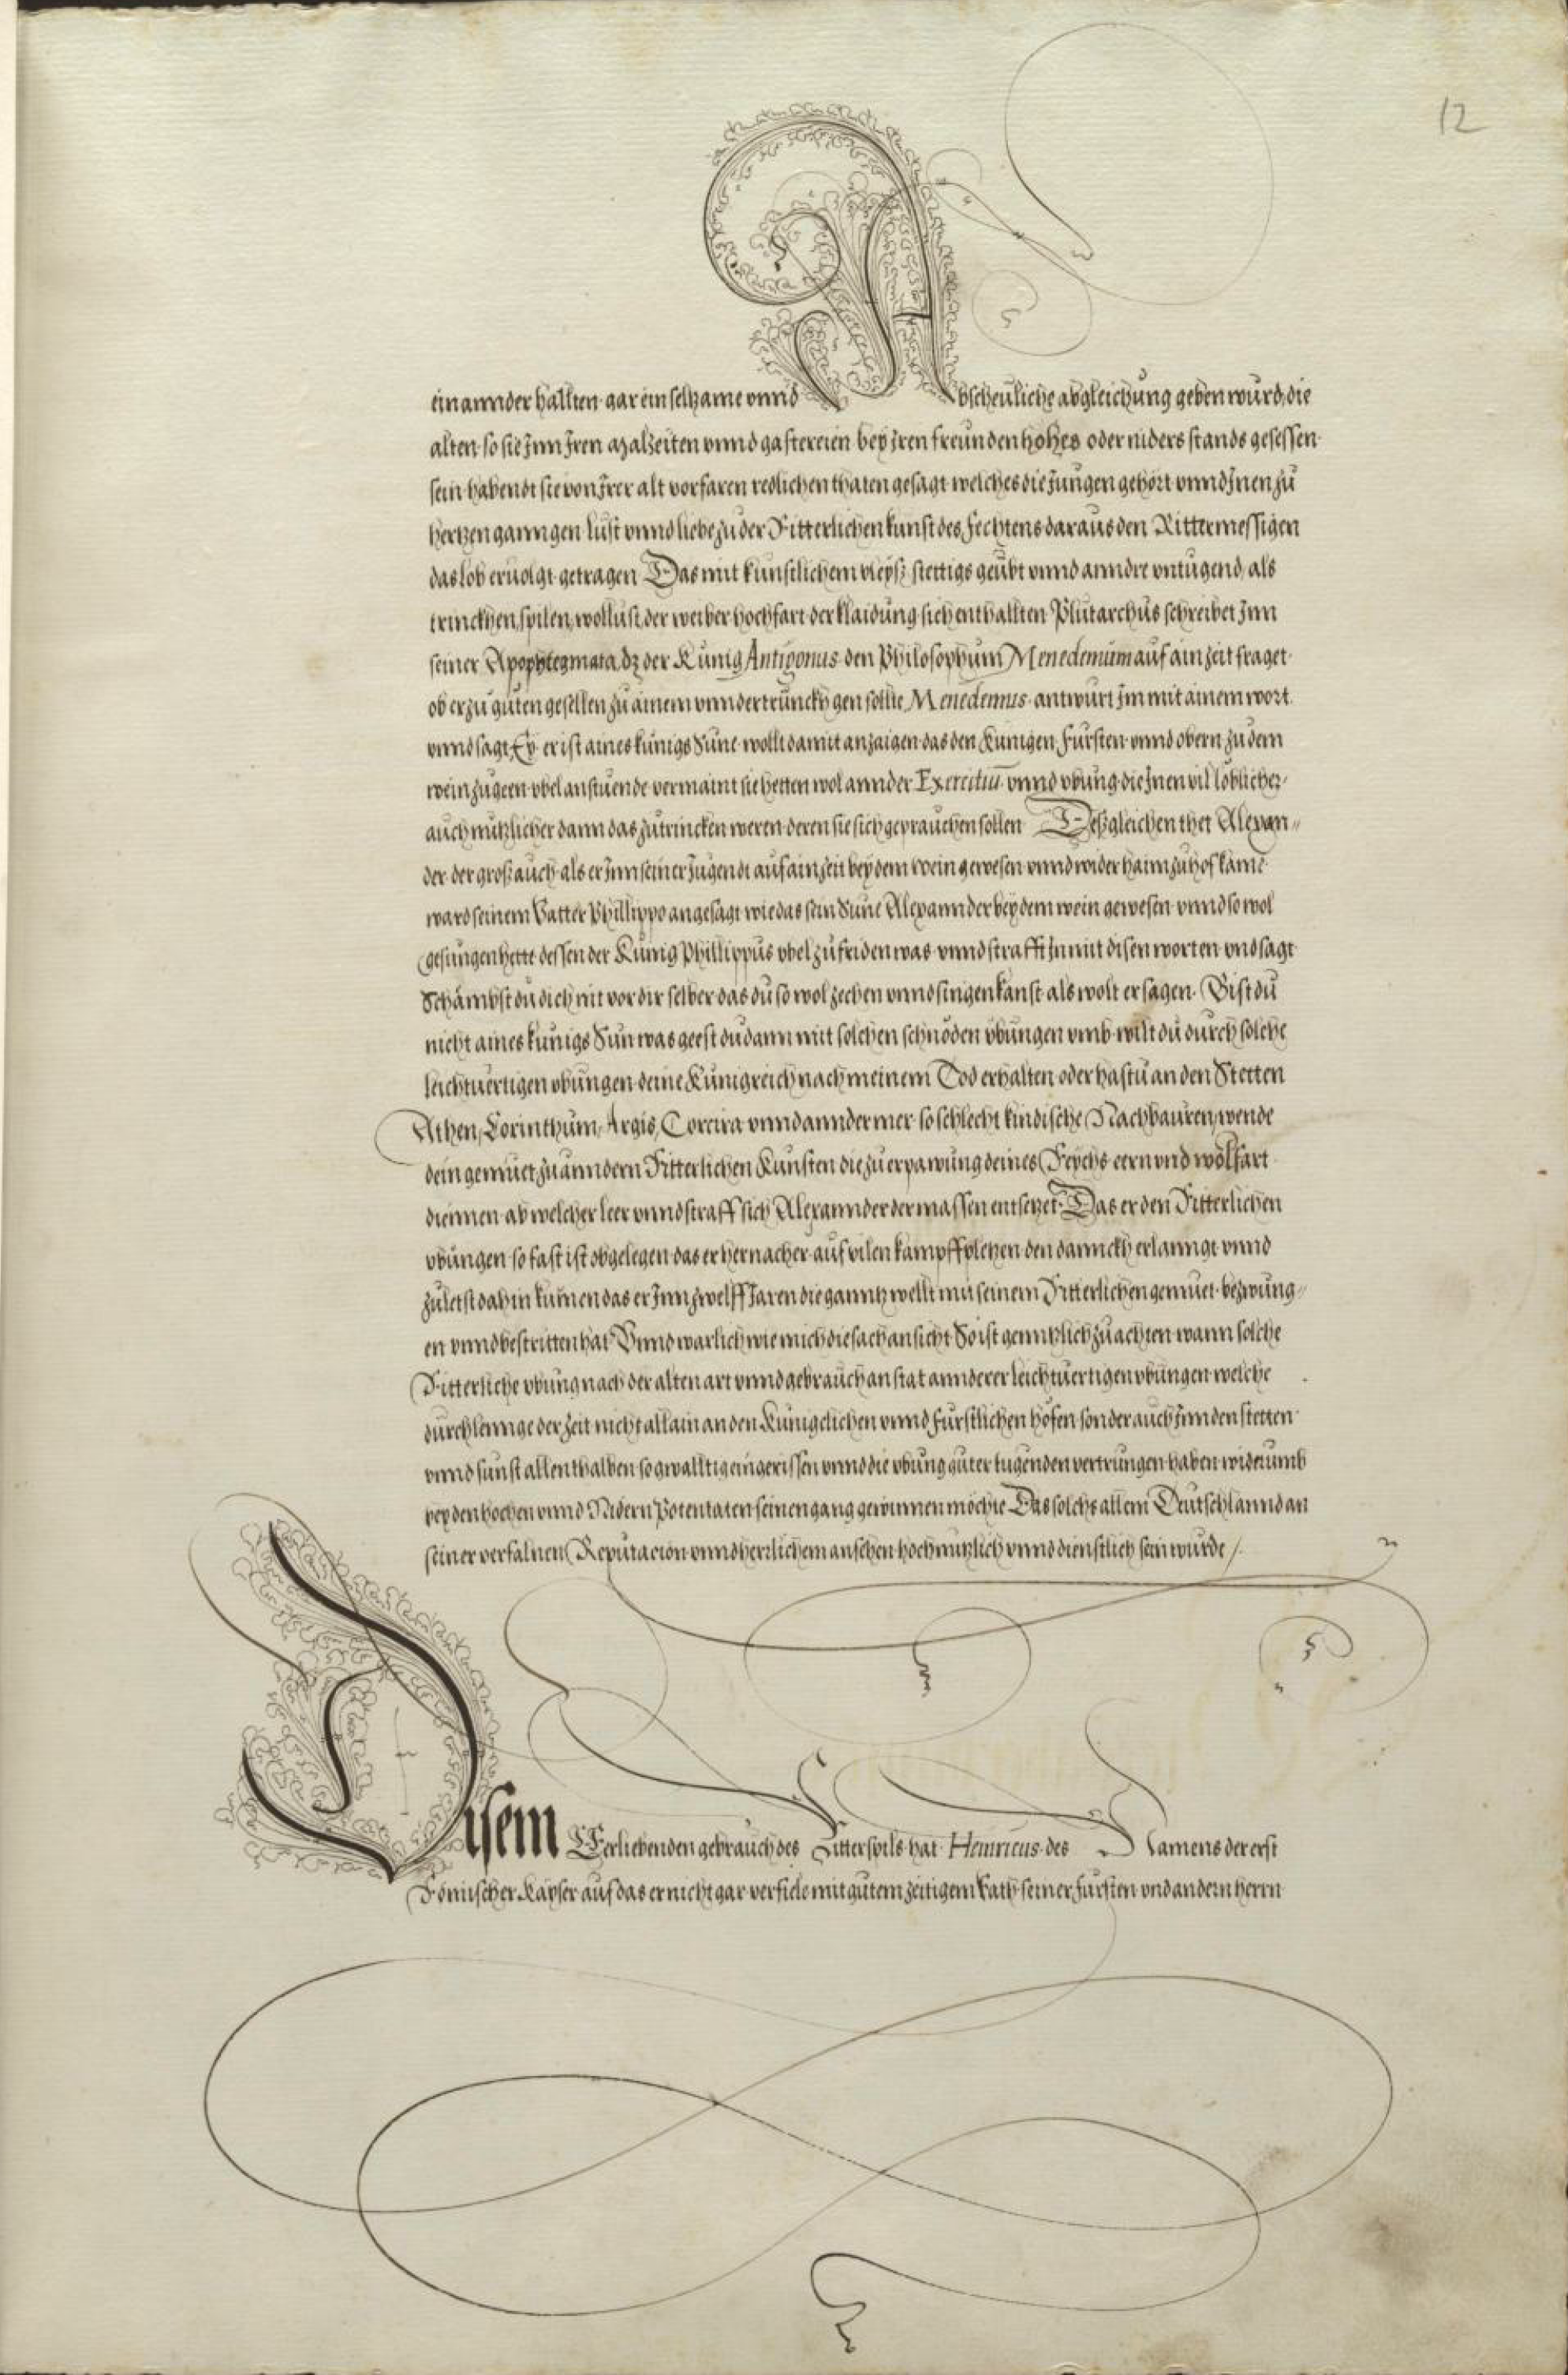 12
einannder hallten gar ein seltzame vnnd Abscheuliche abgleichung geben wurd, die
alten so sie Inn Iren malzeiten vnnd gastereien bey Iren freunden hohes oder niders stands gesessen
sein habendt sie von Irer alt vorfaren redlichen thaten gesagt welches die Jungen gehört vnnd Inen zu
hertzen ganngen lust vnnd liebe zu der Ritterlichen kunst des Fechtens daraus den Rittermessigen
das lob eruolgt getragen Das mit kunstlichem vleyss stettigs geübt vnnd anndre vntugend, als
trinckhen, spilen, wollust, der weiber hochfart der klaidung sich enthallten Plutarchus schreibet Inn
seiner Apophtegmata, dz der Kunig Antigonus den Philosophum Menedemum auf ain zeit fraget
ob er zu guten gesellen zu ainem vnndertrunckh gen sollte, Menedemus antwurt Im mit ainem wort
vnnd sagt, Ey er ist aines kunigs Sune wollt damit anzaigen das den Kunigen Fursten vnnd obern zu dem
wein zugeen vbel anstuende vermaint sie hetten wol annder Exercitiu vnnd vbung die Inen vil löblicher
auch nutzlicher dann das zutrincken weren deren sie sich geprauchen sollen Dessgleichen thet Alexan=
der der gross auch als er Inn seiner Jugendt auf ain zeit bey dem wein gewesen vnnd wider haim zu hof käme
ward seinem Vatter Phillippo angesagt wie das sein Sune Alexannder bey dem wein gewesen vnnd so wol
gesungen hette dessen der Kunig Phillippus vbel zufriden was vnnd strafft In mit disen worten vnd sagt
Schämbst du dich nit vor dir selber das du so wol zechen vnnd singen kanst als wolt er sagen Bist du
nicht aines kunigs Sun was geest du dann mit solchen schnöden vbungen vmb wilt du durch solche
leichtuertigen vbungen deine Kunigreich nach meinem Tod erhalten oder hastu an den Stetten
Athen, Corinthum, Argis, Corcira vnnd annder mer so schlecht kindische Nachbauren, wende
dein gemuet zu anndern Ritterlichen Kunsten die zu erpawung deines Reychs eern vnd wolfart
diennen ab welcher leer vnnd straff sich Alexannder dermassen entsetzet Das er den Ritterlichen
vbungen so fast ist obgelegen das er hernacher auf vilen kampffpletzen den dannckh erlanngt vnnd
zuletst dahin kumen das er Inn zwelff Jaren die ganntz wellt mit seinem Ritterlichen gemuet bezwung=
en vnnd bestritten hat Vnnd warlich wie mich die sach ansicht So ist genntzlich zu achten wann solche
Ritterliche vbung nach der alten art vnnd gebrauch an stat annderer leichtuertigen vbungen welche
durch lennge der zeit nicht allain an den Kunigclichen vnnd furstlichen höfen sonder auch Inn den stetten
vnnd sunst allenthalben so gwalltig eingerissen vnnd die vbung guter tugenden vertrungen haben widerumb
bey den hochen vnnd Nidern Potentaten seinen gang gewinnen möchte Das solchs allem Deutschlannd an
seiner verfalnen Reputacion vnnd herrlichem ansehen hochnutzlich vnnd dienstlich sein wurde /.
Disem Werliebenden gebrauch des Ritterspils hat Heinricus des Namens der erst
Römischer Kayser auf das er nicht gar verfiele mit gutem zeitigem Rath seiner fursten vnd andern herrn